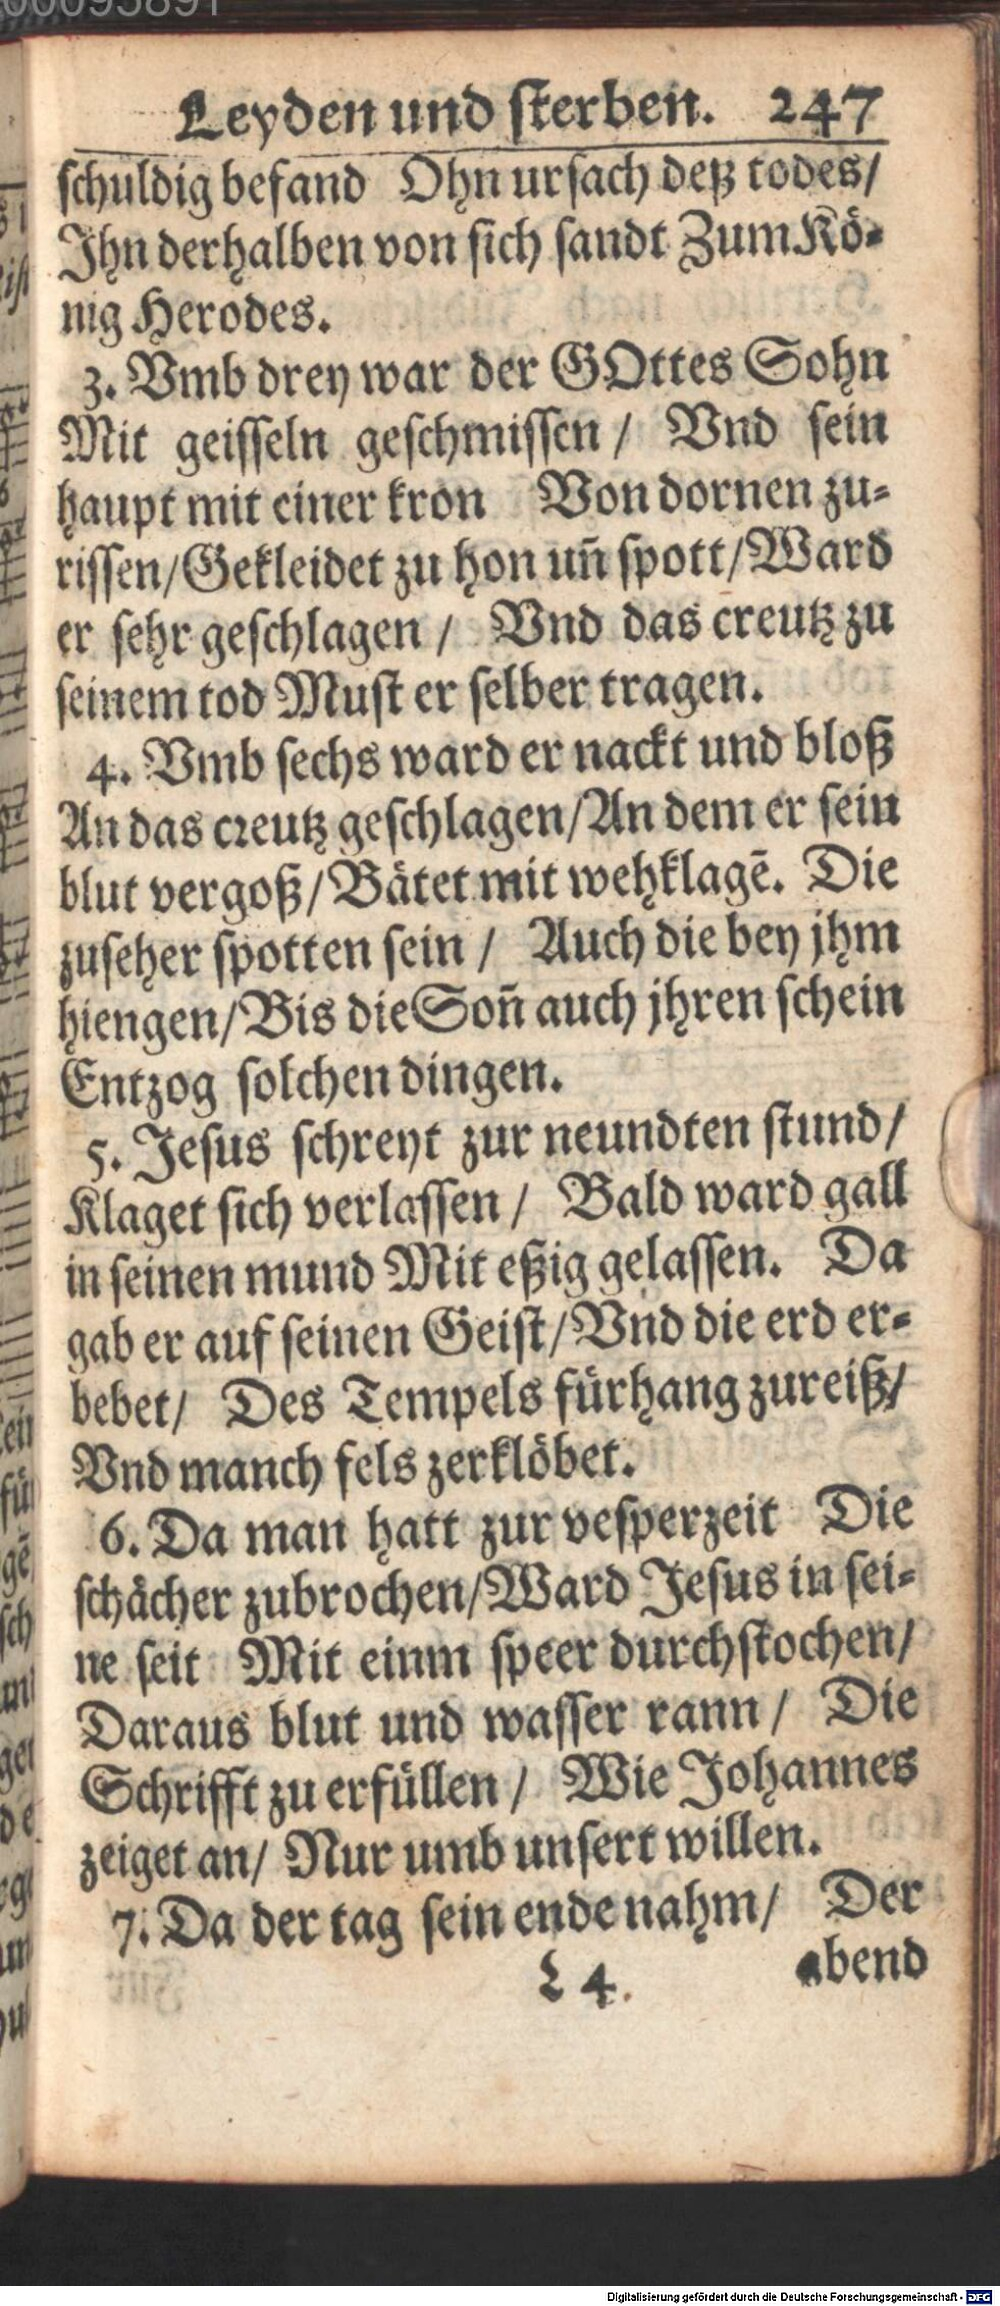 00095891
Leyden und ſterben. 247
ſchuldig befand Ohn urſach deß todes/
Ihn derhalben von ſich ſandt Zum Kö-
nig Herodes.
3. Vmb drey war der GOttes Sohn
Mit geiſſeln geſchmiſſen / Vnd ſein
haupt mit einer kron Von dornen zu-
riſſen/Gekleidet zu hon uñ ſpott/Ward
er ſehr geſchlagen / Vnd das creutz zu
ſeinem tod Muſt er ſelber tragen.
4. Vmb ſechs ward er nackt und bloß
An das creutz geſchlagen/An dem er ſein
blut vergoß/Bätet mit wehklagẽ. Die
zuſeher ſpotten ſein / Auch die bey jhm
hiengen/Bis die Soñ auch jhren ſchein
Entzog ſolchen dingen.
5. Jeſus ſchreyt zur neundten ſtund/
Klaget ſich verlaſſen / Bald ward gall
in ſeinen mund Mit eßig gelaſſen. Da
gab er auf ſeinen Geiſt/Vnd die erd er-
bebet/ Des Tempels fürhang zureiß/
Vnd manch fels zerklöbet.
6. Da man hatt zur veſperzeit Die
ſchächer zubrochen/Ward Jeſus in ſei-
ne ſeit Mit einm ſpeer durchſtochen/
Daraus blut und waſſer rann / Die
Schrifft zu erfüllen / Wie Johannes
zeiget an/ Nur umb unſert willen.
7. Da der tag ſein ende nahm/ Der
L 4. abend
Digitalisierung gefördert durch die Deutsche Forschungsgemeinschaft - DFG